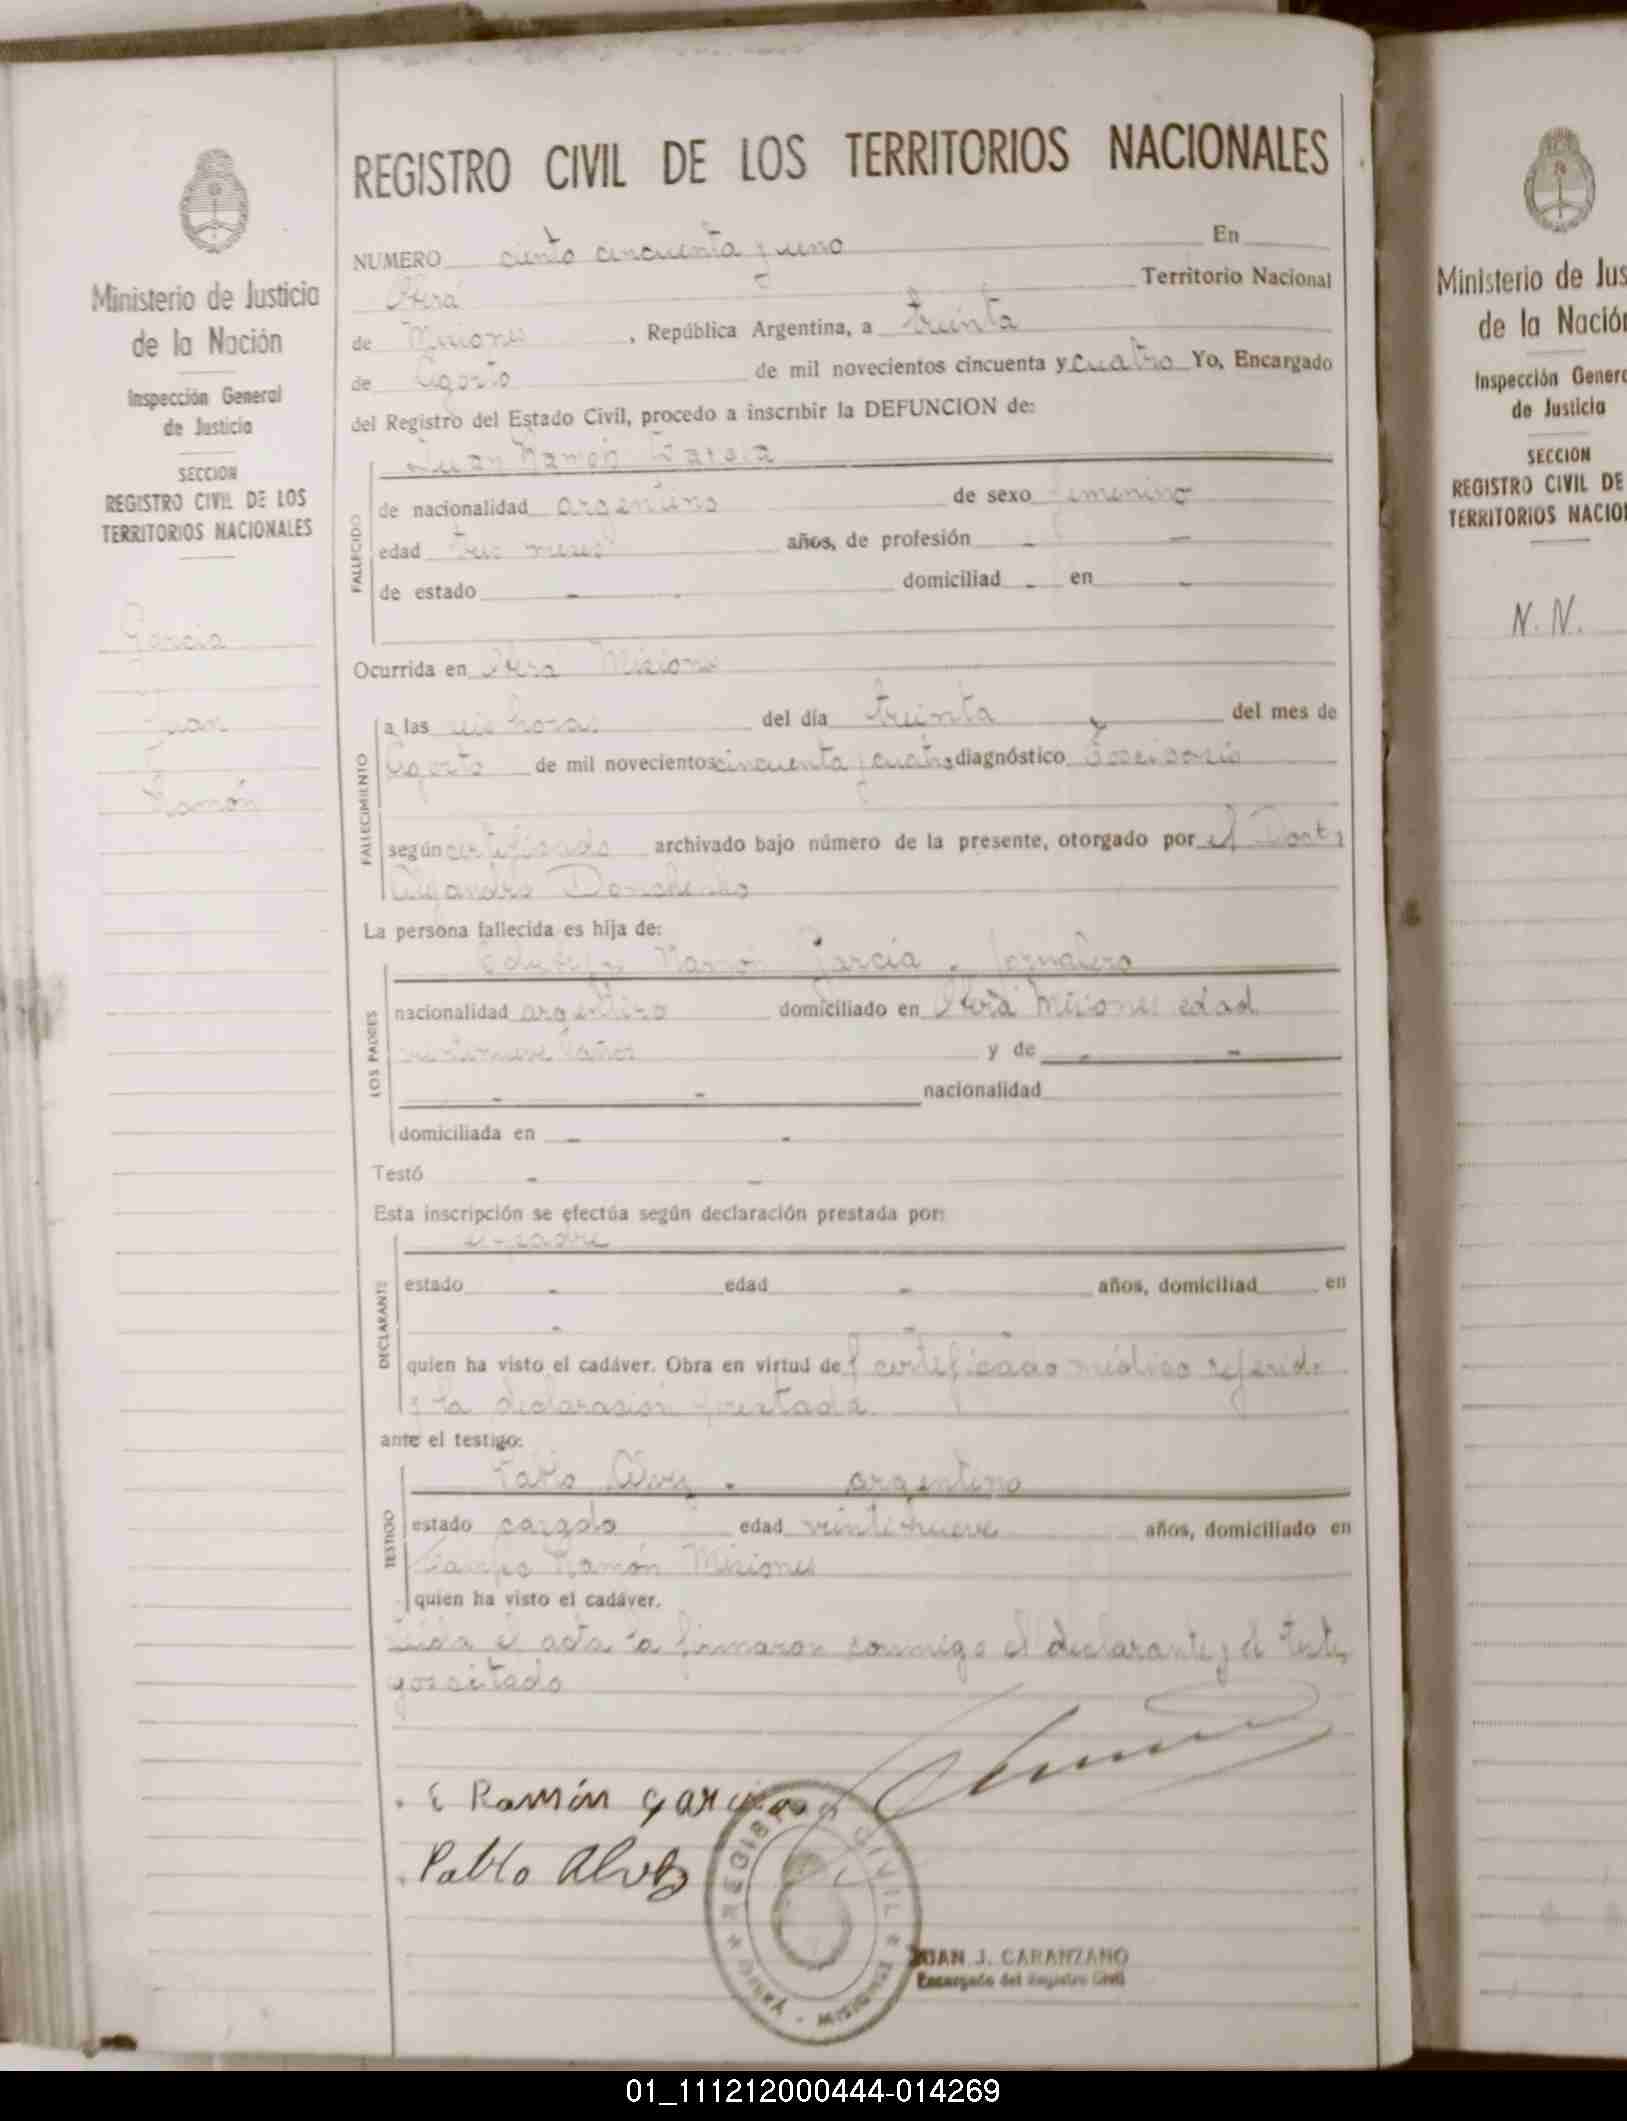 Ministerio de Justicia
de la Nación
Inspección General
de Justicia
SECCION
REGISTRO CIVIL DE LOS
TERRITORIOS NACIONALES
García
Juan
Ramón
REGISTRO CIVIL DE LOS TERRITORIOS NACIONALES
NUMERO ciento cincuenta y uno En
Oberá Territorio Nacional
de Misiones, República Argentina, a treinta
de Agosto de mil novecientos cincuenta y cuatro Yo, Encargado
del Registro del Estado Civil, procedo a inscribir la DEFUNCION de:
Juan Ramón García
FALLECIDO
de nacionalidad argentino de sexo femenino
edad tres meses años, de profesión -
de estado - domiciliad - en -
Ocurrida en Oberá Misiones
FALLECIMIENTO
a las seis horas del día treinta del mes de
Agosto de mil novecientos cincuenta y cuatro diagnóstico
según certificado archivado bajo número de la presente, otorgado por el Doctor
Alejandro
La persona fallecida es hija de:
Ramón García - Jornalero
LOS PADRES
nacionalidad argentino domiciliado en Oberá Misiones edad
años y de - -
- - nacionalidad
domiciliada en - -
Testó - -
Esta inscripción se efectúa según declaración prestada por:
el padre
DECLARANTE
estado - edad - años, domiciliad en
-
quien ha visto el cadáver. Obra en virtud del certificado médico referido
y la declarasión prestada
ante el testigo:
Pablo Alvez - argentino
TESTIGO
estado cazado edad veintinueve años, domiciliado en
Campo Ramón Misiones
quien ha visto el cadáver.
Leída el acta la firmaron conmigo el declarante y el testi
go citado
E Ramón García
Pablo Alvez
REGISTRO CIVIL
JUAN J. CARANZANO
Encargado del Registro Civil
Ministerio de Jus
de la Nació
Inspección Gener
de Justicia
SECCION
REGISTRO CIVIL DE
TERRITORIOS NACIO
N. N.
01_111212000444-014269